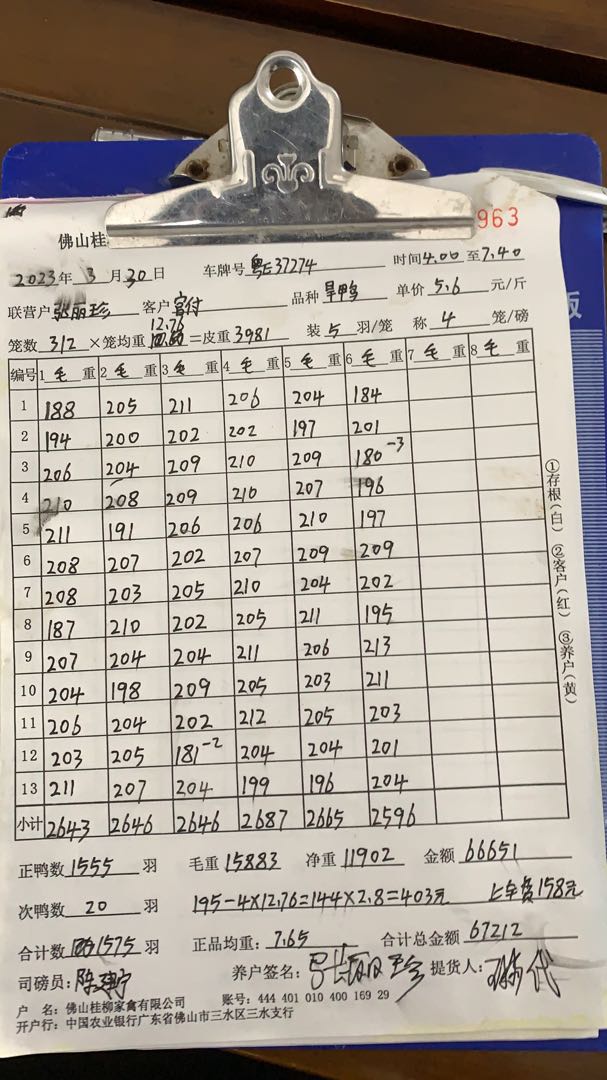 963
佛山桂
2023年 3 月 30 日 车牌号 粤E37274 时间4.00至7.40
联营户 张丽珍 客户 官付 品种 旱鸭 单价 5.6 元/斤
12.76
笼数 312 ×笼均重 =皮重 3981 装 5 羽/笼 称 4 笼/磅
编号 1 毛 重 2 毛 重 3 毛 重 4 毛 重 5 毛 重 6 毛 重 7 毛 重 8 毛 重
1 188 205 211 206 204 184
2 194 200 202 202 197 201
3 206 204 209 210 209 180-3
4 210 208 209 210 207 196
5 211 191 206 206 210 197
6 208 207 202 207 209 209
7 208 203 205 210 204 202
8 187 210 202 205 211 195
9 207 204 204 211 206 213
10 204 198 209 205 203 211
11 206 204 202 212 205 203
12 203 205 181-2 204 204 201
13 211 207 204 199 196 204
小计 2643 2646 2646 2687 2665 2596
正鸭数 1555 羽 毛重 15883 净重 11902 金额 66651
次鸭数 20 羽 195-4×12.76=144×2.8=403元 上车费158元
合计数 1575 羽 正品均重: 7.65 合计总金额 67212
司磅员: 养户签名: 张丽珍 提货人: 代
户 名: 佛山桂柳家禽有限公司 账号: 444 401 010 400 169 29
开户行: 中国农业银行广东省佛山市三水区三水支行
①存根(白) ②客户(红) ③养户(黄)